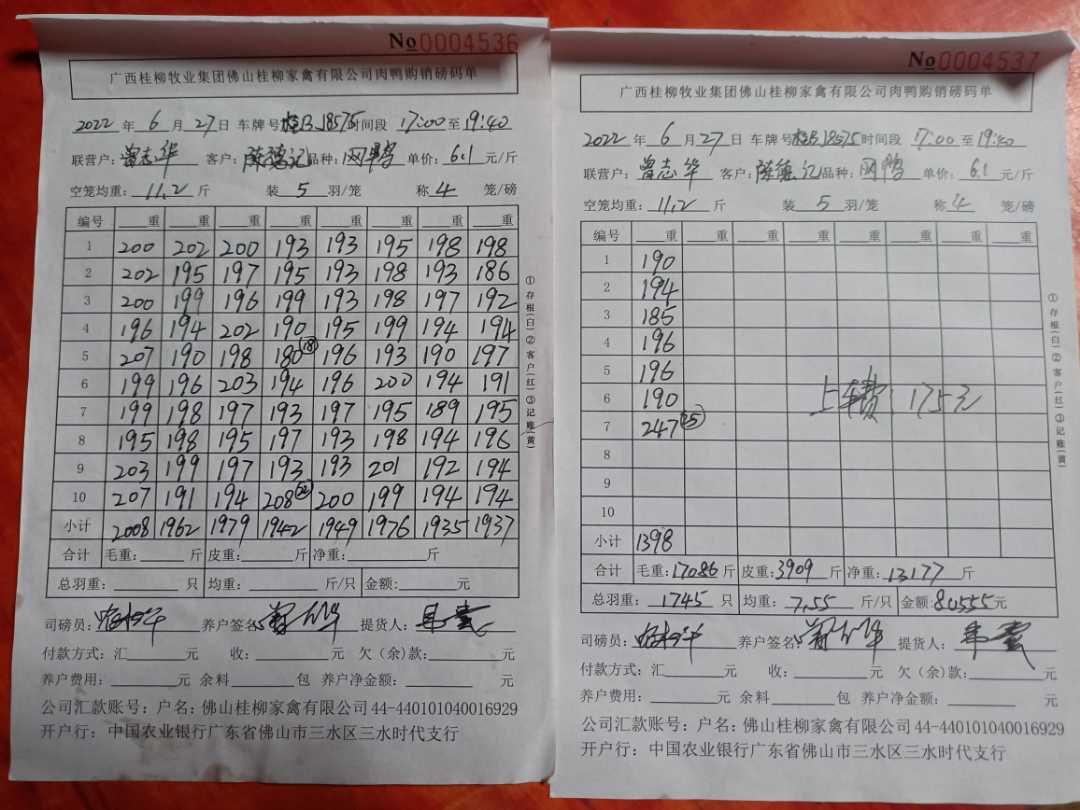 No 0004536
广西桂柳牧业集团佛山桂柳家禽有限公司肉鸭购销磅码单
2022 年 6 月 27 日 车牌号 桂B J8575 时间段 17:00 至 19:40
联营户: 曾志华 客户: 陈德记 品种: 网鸭 单价: 6.1 元/斤
空笼均重: 11.2 斤 装 5 羽/笼 称 4 笼/磅
编号 重 重 重 重 重 重 重 重
1 200 202 200 193 193 195 198 198
2 202 195 197 195 193 198 193 186
3 200 199 196 199 193 198 197 192
4 196 194 202 190 195 199 194 194
5 207 190 198 180 18 196 193 190 197
6 199 196 203 194 196 200 194 191
7 199 198 197 193 197 195 189 195
8 195 198 195 197 193 198 194 196
9 203 199 197 193 193 201 192 194
10 207 191 194 208 22 200 199 194 194
小计 2008 1962 1979 1942 1949 1976 1935 1937
合计 毛重: 斤 皮重: 斤 净重: 斤
总羽重: 只 均重: 斤/只 金额: 元
司磅员: 养户签名: 提货人:
付款方式: 汇 元 收: 元 欠(余)款: 元
养户费用: 元 余料 包 养户净金额: 元
公司汇款账号: 户名: 佛山桂柳家禽有限公司 44-440101040016929
开户行: 中国农业银行广东省佛山市三水区三水时代支行
①存根(白)②客户(红)③记账(黄)
No 0004537
广西桂柳牧业集团佛山桂柳家禽有限公司肉鸭购销磅码单
2022 年 6 月 27 日 车牌号 桂B J8575 时间段 17:00 至 19:40
联营户: 曾志华 客户: 陈德记 品种: 网鸭 单价: 6.1 元/斤
空笼均重: 11.2 斤 装 5 羽/笼 称 4 笼/磅
编号 重 重 重 重 重 重 重 重
1 190
2 194
3 185
4 196
5 196
6 190 上车费: 175元
7 247 25
8
9
10
小计 1398
合计 毛重: 17086 斤 皮重: 3909 斤 净重: 13177 斤
总羽重: 1745 只 均重: 7.55 斤/只 金额: 80555 元
司磅员: 养户签名: 提货人:
付款方式: 汇 元 收: 元 欠(余)款: 元
养户费用: 元 余料 包 养户净金额: 元
公司汇款账号: 户名: 佛山桂柳家禽有限公司 44-440101040016929
开户行: 中国农业银行广东省佛山市三水区三水时代支行
①存根(白)②客户(红)③记账(黄)